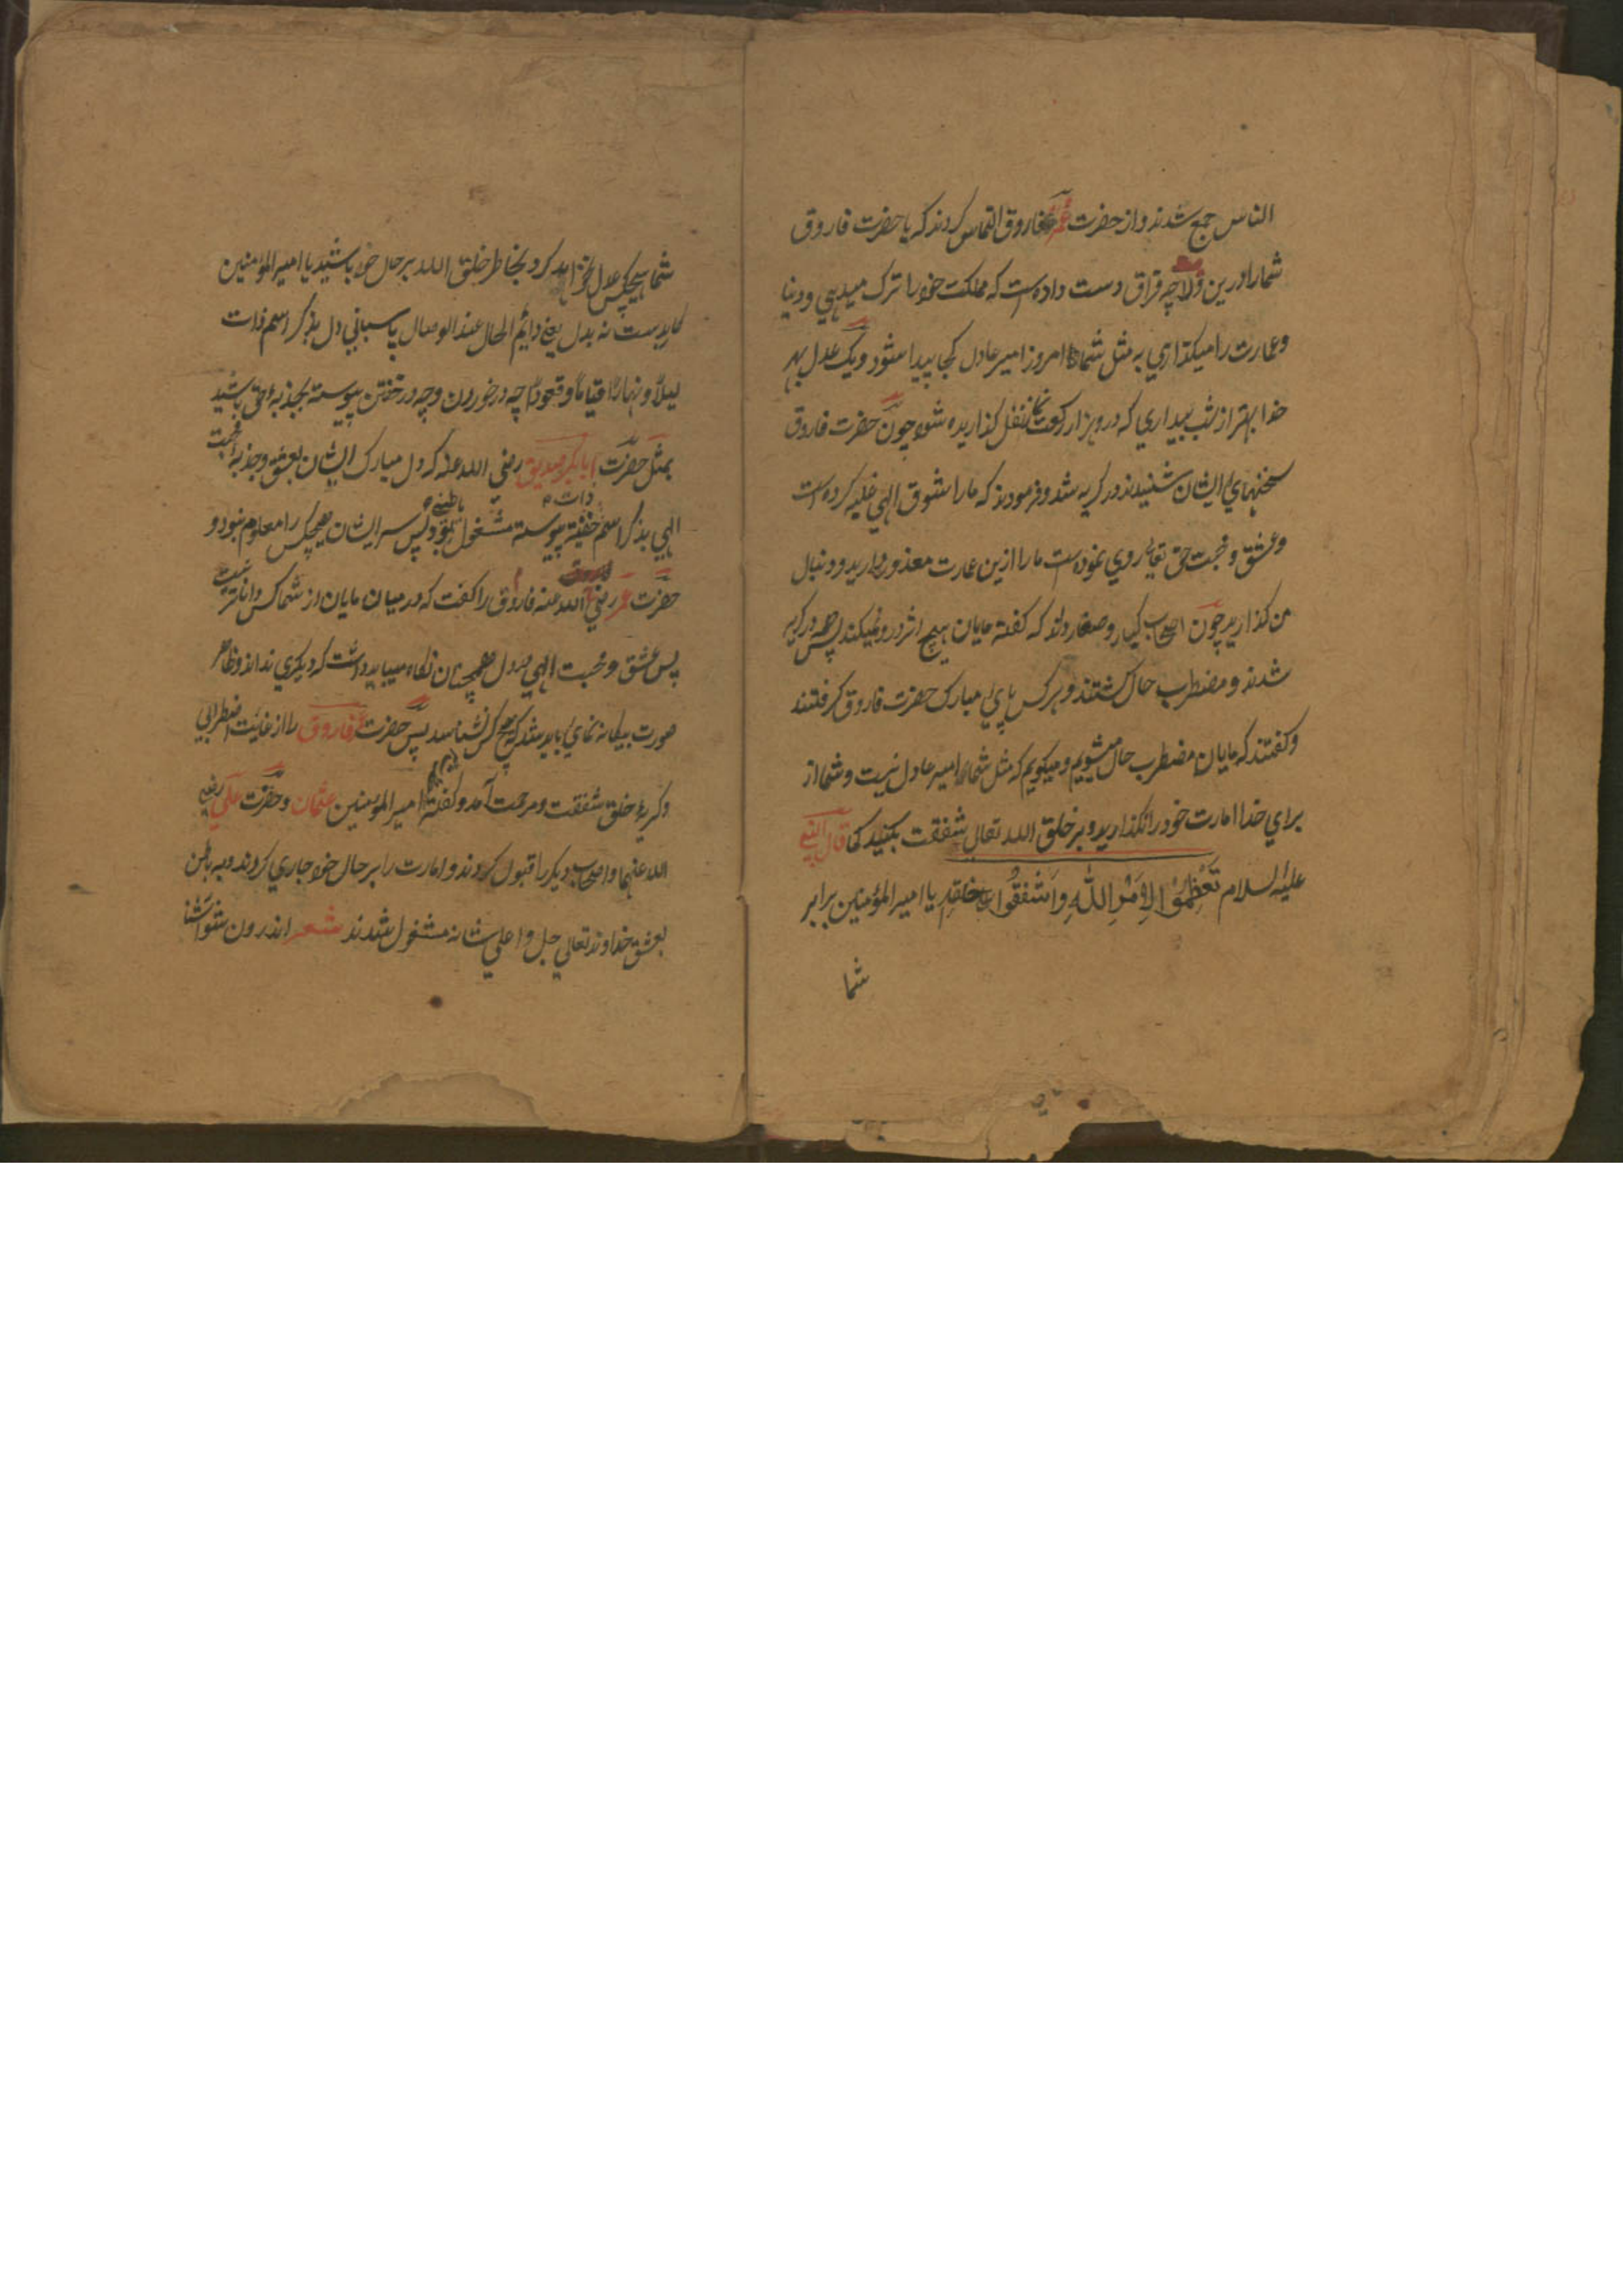 الناس جمع شدند و از حضرت عمر فاروق التماس کردند که یا حضرت فاروق
شما را درین ولا چه فراق دست داده است که مملکت خود را ترک میدهی و دنیا
و عمارت را میکذاری به مثل شما امروز امیر عادل کجا پیدا شود و یک عدل بهر
خدا بهتر از شب بیداری که درو هزار رکعت نماز نفل کذاریده شود چون حضرت فاروق
سخنهای ایشان شنیدند در کریه شد و فرمودند که ما را شوق الهی غلبه کرده است
و عشق و محبت حق تعالی روی نموده است ما را ازین عمارت معذور دارید و دنبال
من کذارید چون اصحاب کبار و صغار دانند که کفته مایان هیچ اثر درو نمیکند پس همه در کریه
شدند و مضطرب حال کشتند و هر کس پای مبارک حضرت فاروق کرفتند
و کفتند که مایان مضطرب حال میشویم و میکویم که مثل شما امیر عادل نیست و شما از
برای خدا امارت خود را نکذارید و بر خلق الله تعالی شفقت بکنید کما قال النبی
علیه السلام تَعْظِمُوْا لِاَمْرِ اللّٰهِ وَاَشْفِقُوا علی خلقه یا امیر المؤمنین برابر
شما
شما هیچکس عدل نخواهد کرد بخاطر خلق الله بر حال خود باشید یا امیر المؤمنین
کار بدست نه بدل یعنی دایم الحال عند الوصال پاسبانی دل بذکر اسم ذات
لیلاً و نهاراً قیاماً و قعوداً چه در خوردن و چه در خفتن پیوسته بجذبه حق باشید
بمثل حضرت ابابکر صدیق رضی الله عنه که دل مبارک ایشان بعشق و جذبه محبت
الهی بذکر اسم ذات خفیة پیوسته مشغول باطنی بود پس سر ایشان هیچکس را معلوم نبود و
حضرت عمر رضی الله عنه فاروق را کفت که در میان مایان از شما کس دانا تر نیست
پس عشق و محبت الهی در دل همچنان نکاه میباید داشت که دیکری نداند و ظاهر
صورت بیکانه نمای باید شد که هیچ کس نشناسد پس حضرت فاروق را از غایت اضطرابی
و کریه خلق شفقت و مرحمت آمد و کفته امیر المؤمنین عثمان و حضرت علی رضی
الله عنهما و اصحاب دیکر را قبول کردند و امارت را بر حال خود جاری کردند و به باطن
بعشق خداوند تعالی جل و اعلی شانه مشغول شدند شعر اندرون شو آشنا